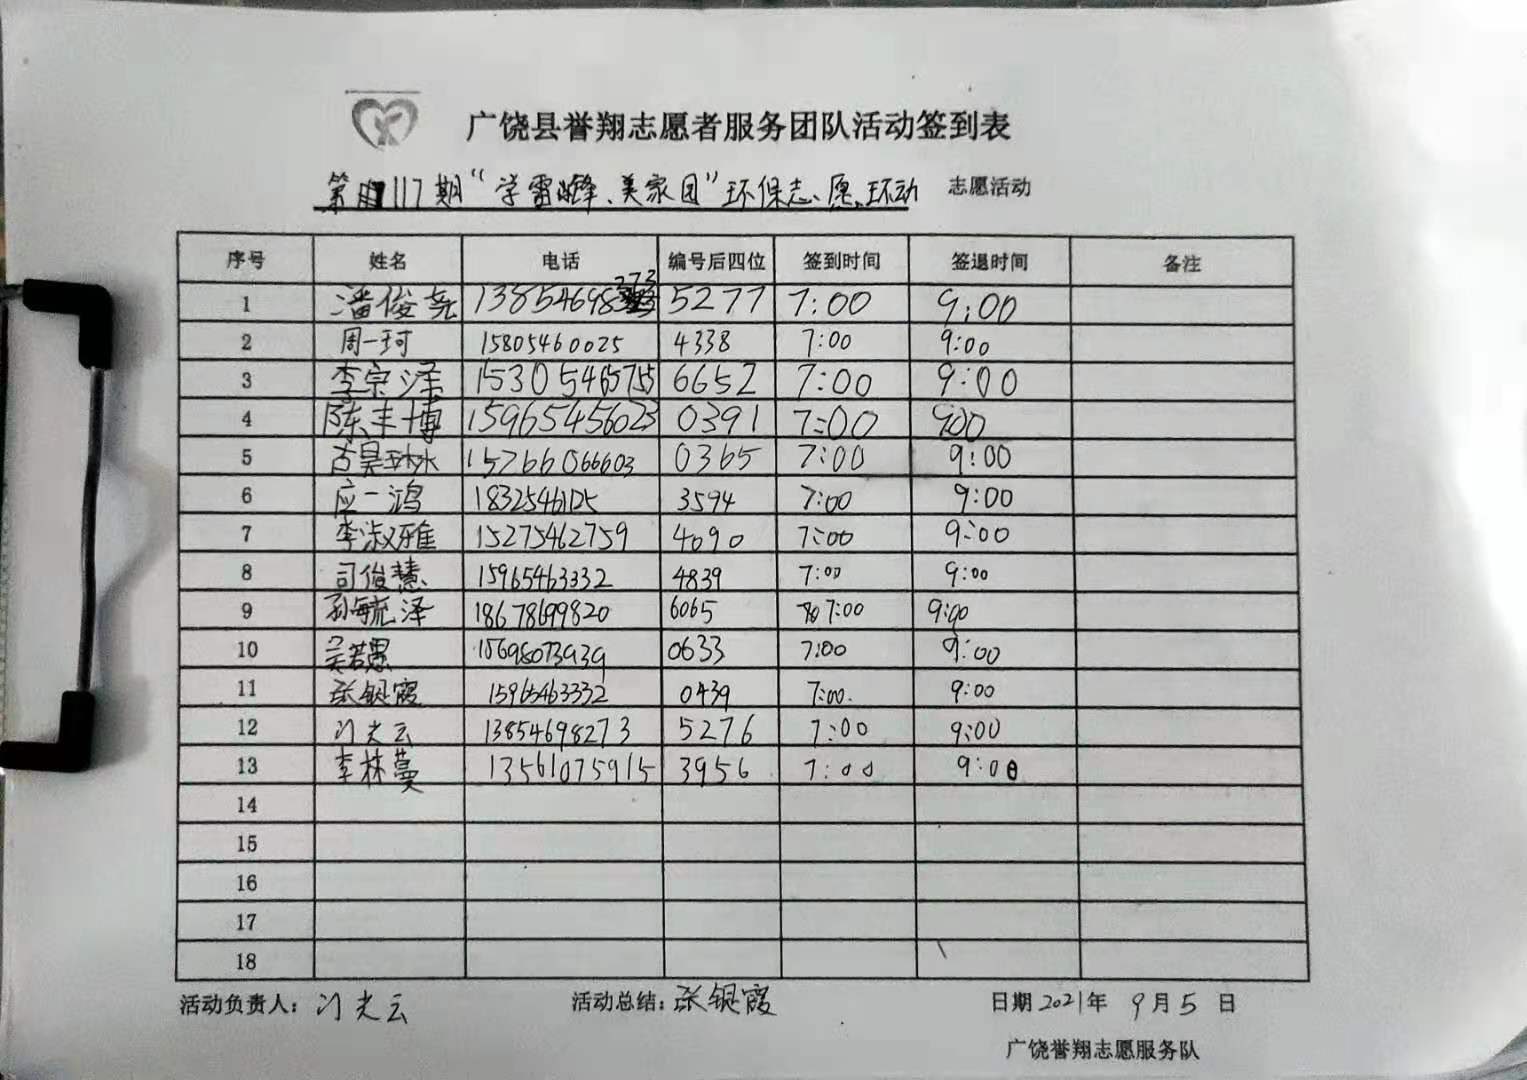 广饶县誉翔志愿者服务团队活动签到表
第117期“学雷峰、美家园”环保志愿活动 志愿活动
序号 姓名 电话 编号后四位 签到时间 签退时间 备注
1 潘俊尧 13854698273 5277 7:00 9:00
2 周一珂 15805460025 4338 7:00 9:00
3 李宗泽 15305465755 6652 7:00 9:00
4 陈丰博 15965456023 0391 7:00 900
5 15266066603 0365 7:00 9:00
6 应一鸿 3594 7:00 9:00
7 李淑雅 15275462759 4090 7:00 9:00
8 司俊慧 15965463332 4839 7:00 9:00
9 孙毓泽 18678699820 6065 7:00 9:00
10 吴若愚 15698073939 0633 7:00 9:00
11 张银霞 15965463332 0439 7:00 9:00
12 门光云 13854698273 5276 7:00 9:00
13 李林蔓 13561075915 3956 7:00 9:00
14
15
16
17
18
活动负责人：门光云 活动总结：张银霞 日期 2021年 9月5日
广饶誉翔志愿服务队